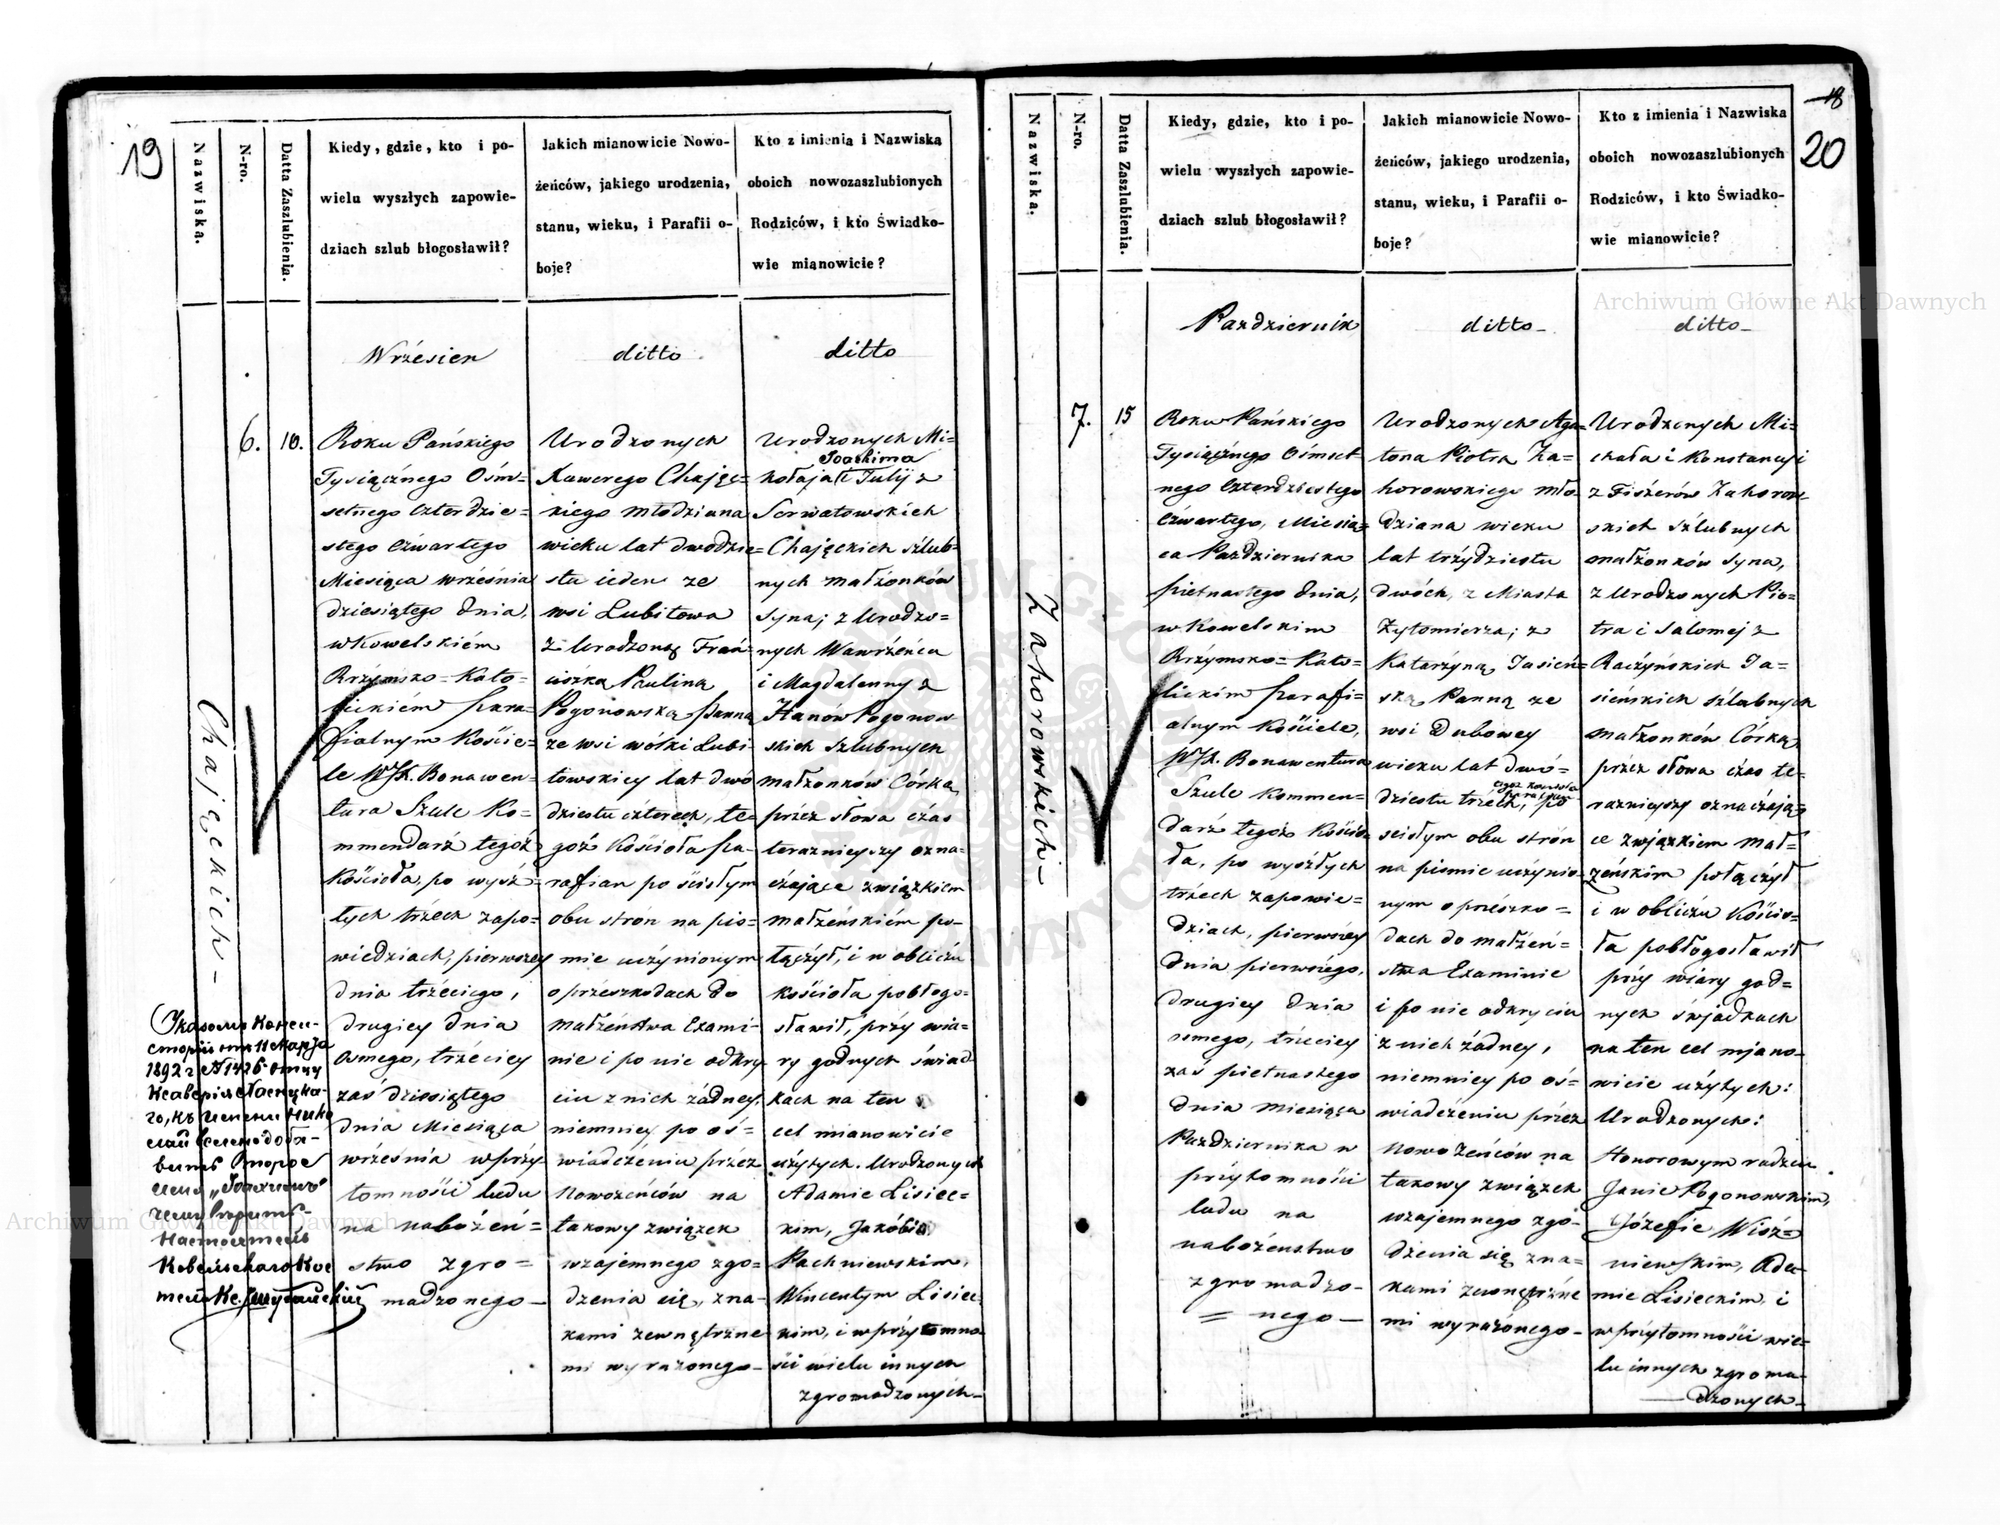 19
Nazwiska.
N-ro.
Datta Zaszlubienia.
Kiedy, gdzie, kto i po-
wielu wyszłych zapowie-
dziach szlub błogosławił?
Jakich mianowicie Nowo-
żeńców, jakiego urodzenia,
stanu, wieku, i Parafii o-
boje?
Kto z imienia i Nazwiska
oboich nowozaszlubionych
Rodziców, i kto Świadko-
wie mianowicie?
Wrżesien
ditto
ditto
Chajęckich -
6.
10.
Roku Pańskiego
Tysiącznego Ośm=
setnego Czterdzie=
stego Czwartego
Miesiąca września
dziesiątego dnia,
w Kowelskiém
Rzżymsko=Kato=
lickiém Para=
fialnym Koście=
le WJX. Bonawen=
tura Szulc Ko=
mmendarż tegoż
Kościoła, po wysż=
łych trżech zapo=
wiedziach, pierwszey
dnia trżeciego,
drugiey dnia
osmego, trżeciey
zaś dziesiątego
dnia Miesiąca
wrżeśnia w prży=
tomności ludu
na nabożeń=
stwo zgro=
madzonego—
Urodzonych
Xawerego Chajęc=
kiego młodziana
wieku lat dwódzie=
stu ieden ze
wsi Lubitowa
z Urodzoną Fran=
ciszką Pauliną
Pogonowską Panną
ze wsi wólki Lubi
towskiey lat dwo
dziestu czterech, te=
goż Kościoła pa=
rafian po ścisłym
obu strón na piś=
mie uczynionym
o prżeszkodach do
małżeństwa Exami=
nie i po nie odkry
ciu z nich żadney,
niemniey po oś=
wiadcżeniu przez
Nowożeńców na
takowy związek
wzajemnego zgo=
dzenia się, zna=
kami zewnętrzne
mi wyrażonego—
Urodzonych Mi=
Joachima
kołaja i Julij z
Serwatowskich
Chajęckich szlub=
nych małżonków
syna; z Urodzo=
nych Wawrżeńca
i Magdalenny z
Hanów Pogonow
skich szlubnych
małżonków Córką,
prżez słowa czas
teraznieyszy ozna=
czające związkiem
małżeńskiém po=
łączył, i w obliczu
kościoła pobłogo=
sławił, prży wia=
ry godnych świad
kach na ten
cel mianowicie
użytych. Urodzonych
Adamie Lisiec=
kim, Jakóbie
Pachniewskim,
Wincentym Lisiec
kim, i w przytomno
ści wielu innych
zgromadzonych—
1892 г
18
20
Nazwiska.
N-ro.
Datta Zaszlubienia.
Kiedy, gdzie, kto i po-
wielu wyszłych zapowie-
dziach szlub błogosławił?
Jakich mianowicie Nowo-
żeńców, jakiego urodzenia,
stanu, wieku, i Parafii o-
boje?
Kto z imienia i Nazwiska
oboich nowozaszlubionych
Rodziców, i kto Świadko-
wie mianowicie?
Pazdziernik
ditto—
ditto—
Zahorowskich—
7.
15
Roku Pańskiego
Tysiącznego Ośmset
nego Czterdziestego
Czwartego, Miesią=
ca Pazdziernika
pietnastego dnia,
w Kowelskim
Rzżymsko=Kato=
lickim Parafi=
alnym Kościele,
WJX. Bonawentura
Szulc Kommen=
darż tegoż Kościo=
ła, po wyszłych
trżech zapowie=
dziach, pierwszey
dnia pierwszego,
drugiey dnia
osmego, trżeciey
zaś pietnastego
dnia Miesiąca
Pazdziernika w
prżytomności
ludu na
nabożenstwo
zgromadzo=
= nego—
Urodzonych Aga=
tona Piotra Za=
horowskiego mło=
dziana wieku
lat trżydziestu
dwóch, z Miasta
Żytomierza; z
Katarżyną Jasień=
ską Panną ze
wsi Dubowey
wieku lat dwó=
dziestu trzech, po
scisłym obu strón
na piśmie uczynio=
nym o prżeszko=
dach do małżeń=
stwa Examinie
i po nie odkryciu
z nich żadney,
niemniey po oś=
wiadczeniu prżez
Nowożeńców na
takowy związek
wzajemnego zgo=
dzenia się zna=
kami zewnętrzne
mi wyrażonego—
Urodzonych Mi=
chała i Konstancyi
z Fiszerów Zahorow
skich szlubnych
małżonków syna,
z Urodzonych Pio=
tra i Salomej z
Raczyńskich Ja=
sieńskich szlubnych
małżonków Córką,
prżez słowa czas te=
raznieyszy oznaczają=
ce związkiem mał=
żeńskim połączył
i w obliczu Kościo=
ła pobłogosławił
prży wiary god=
nych świadkach
na ten cel miano=
wicie użytych:
Urodzonych:
Honorowym radzcu
Janie Pogonowskim,
Józefie Wisz=
niewskim, Ada=
mie Lisieckim, i
w przytomności wie=
lu innych zgroma=
dzonych—
Archiwum Główne Akt Dawnych
Archiwum Główne Akt Dawnych